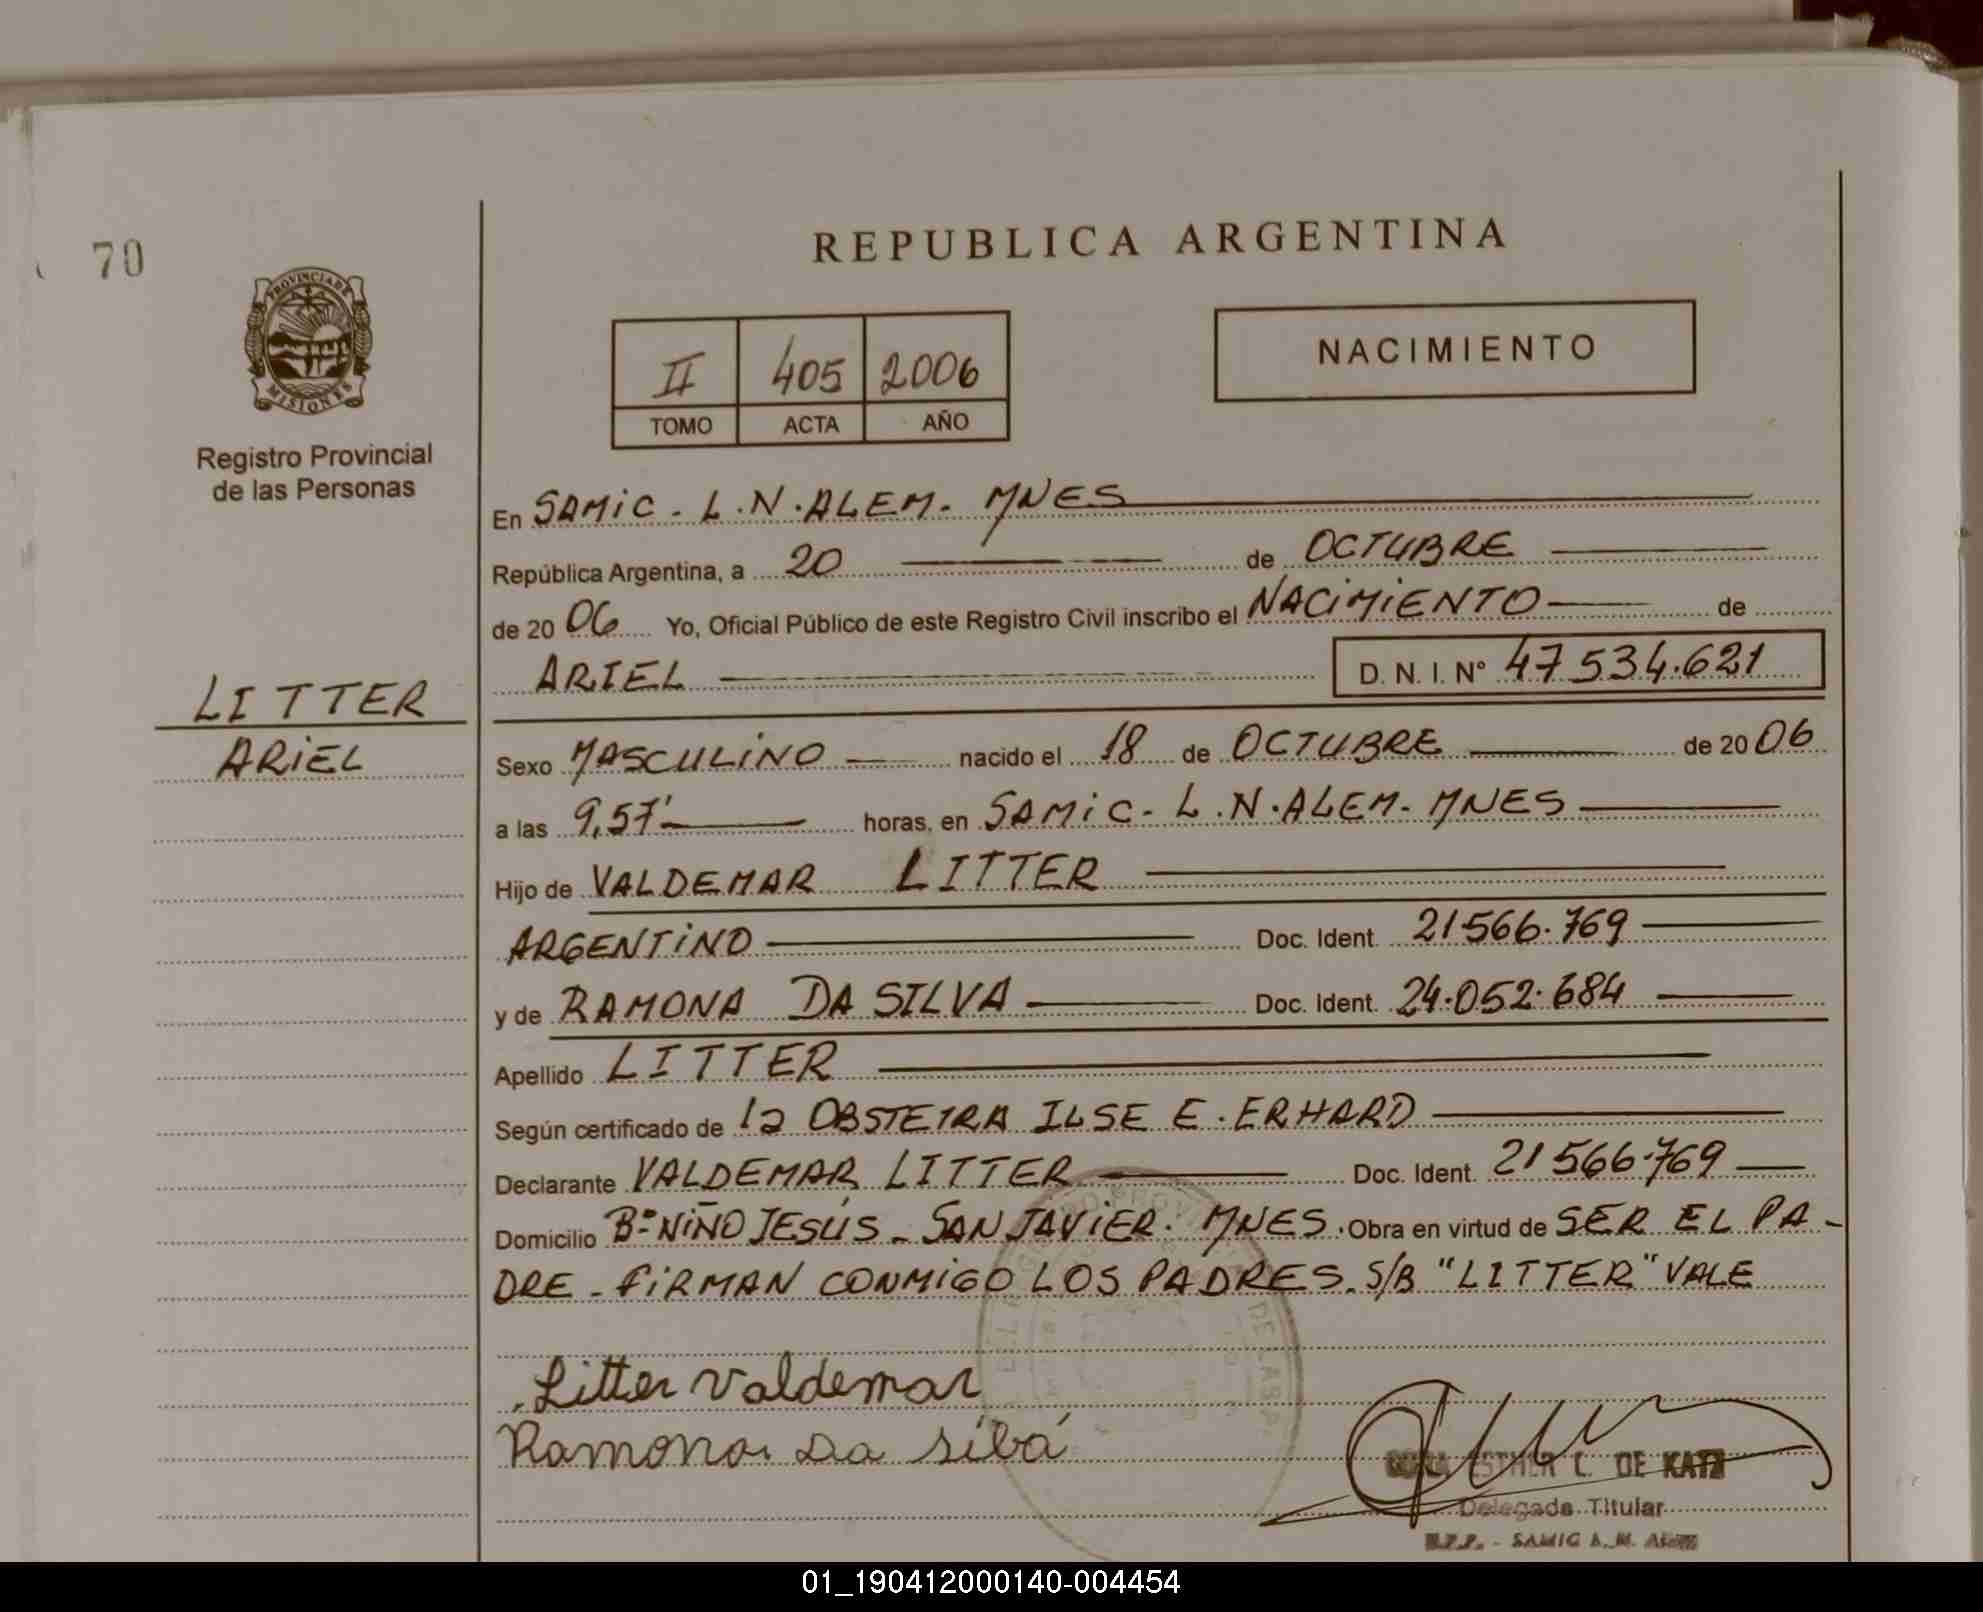 70
PROVINCIA DE
MISIONES
Registro Provincial
de las Personas
LITTER
ARIEL
REPUBLICA ARGENTINA
II 405 2006
TOMO ACTA AÑO
NACIMIENTO
En SAMIC - L.N. ALEM - MNES
República Argentina, a 20 de OCTUBRE
de 2006 Yo, Oficial Público de este Registro Civil inscribo el NACIMIENTO de
ARIEL D. N. I. Nº 47534.621
Sexo MASCULINO nacido el 18 de OCTUBRE de 2006
a las 9,57' horas, en SAMIC - L.N. ALEM - MNES
Hijo de VALDEMAR LITTER
ARGENTINO Doc. Ident. 21566.769
y de RAMONA DA SILVA Doc. Ident. 24.052.684
Apellido LITTER
Según certificado de la OBSTETRA ILSE E. ERHARD
Declarante VALDEMAR LITTER Doc. Ident. 21566.769
Domicilio Bº NIÑO JESÚS - SAN JAVIER. MNES. Obra en virtud de SER EL PA-
DRE - FIRMAN CONMIGO LOS PADRES. S/B "LITTER" VALE
Litter Valdemar
Ramona Da silva
ESTHER C. DE KATZ
Delegada Titular
01_190412000140-004454